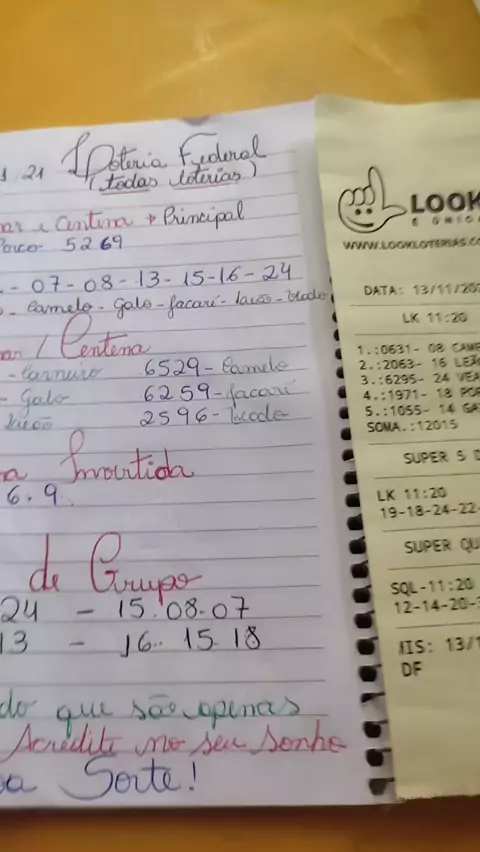 1.21 Loteria Federal
(todas loterias)
ar e Centena → Principal
Porco 5269
- 07-08-13-15-16-24
- Camelo - Galo - Jacaré - Leão - Veado
ar / Centena
- Carneiro 6529 - Camelo
- Galo 6259 - Jacaré
Leão 2596 - Veado
a Invertida
6.9.
de Grupo
24 - 15.08.07
13 - 16.15.18
do que são apenas
Acredite no seu sonho
oa Sorte!
LOOK
WWW.LOOKLOTERIAS.CO
DATA: 13/11/202
LK 11:20
1.:0631- 08 CAME
2.:2063- 16 LEÃ
3.:6295- 24 VEA
4.:1971- 18 POR
5.:1055- 14 GA
SOMA.:12015
SUPER 5 D
LK 11:20
19-18-24-22-
SUPER QU
SQL-11:20
12-14-20-
MIS: 13/1
DF